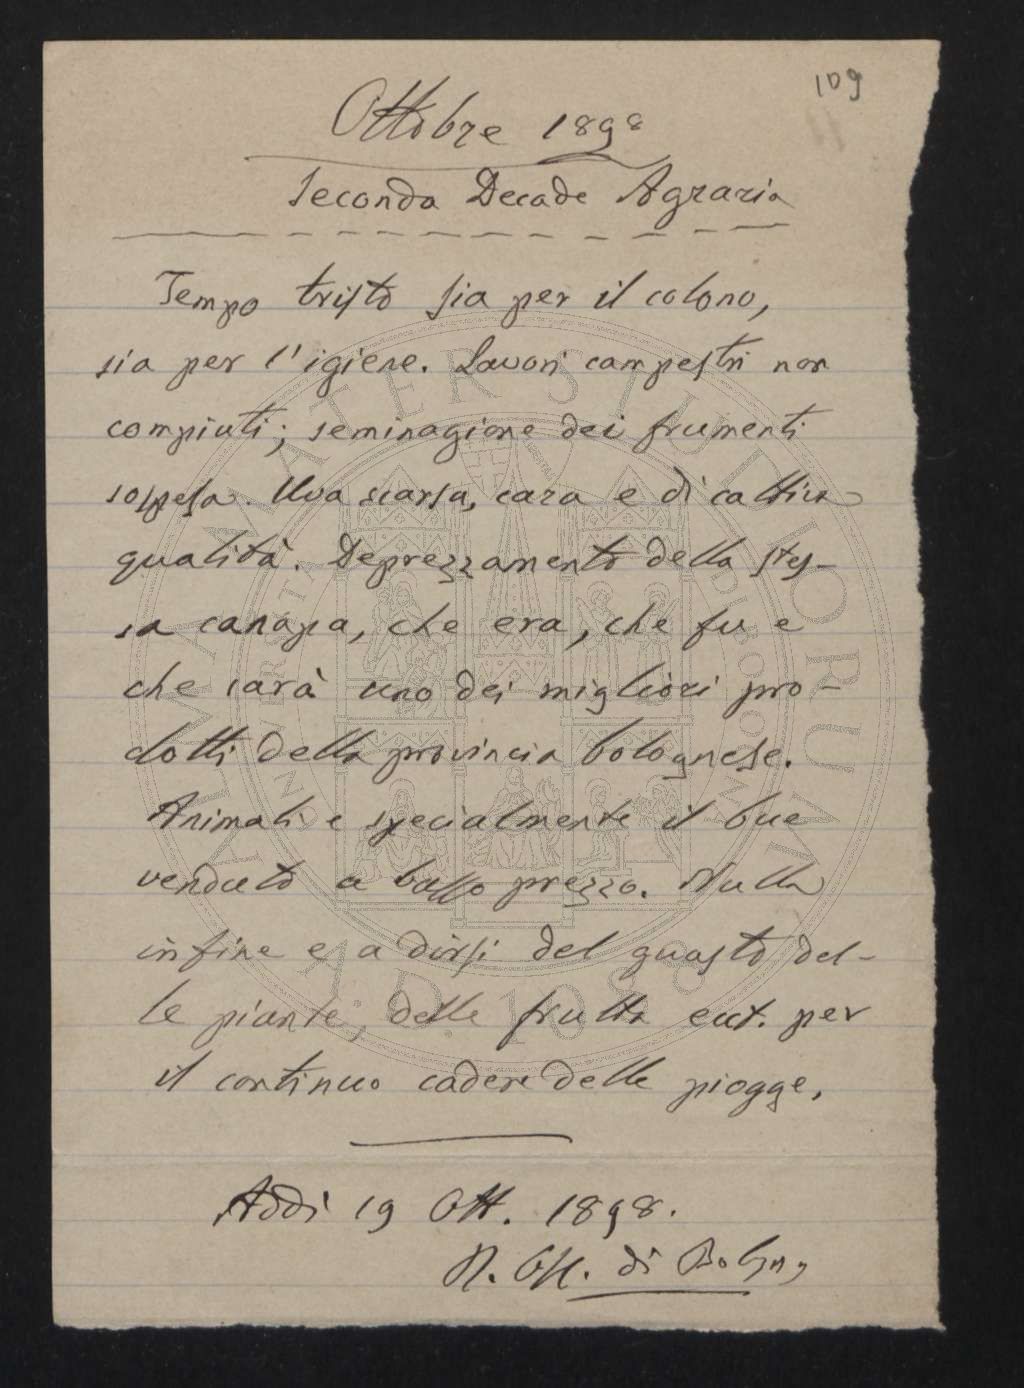 109
Ottobre 1898
Seconda Decade Agraria
Tempo tristo sia per il colono,
sia per l'igiene. Lavori campestri non
compiuti; seminagione dei frumenti
sospesa. Uva scarsa, cara e di cattiva
qualità. Deprezzamento della stes-
sa canapa, che era, che fu e
che sarà uno dei migliori pro-
dotti della provincia bolognese.
Animali e specialmente il bue
venduto a basso prezzo. Nulla
infine è a dirsi del guasto del-
le piante, delle frutta ect. per
il continuo cadere delle piogge.
Addì 19 Ott. 1898.
R. Oss. di Bologna
ALMA MATER STUDIORUM
A.D. 1088